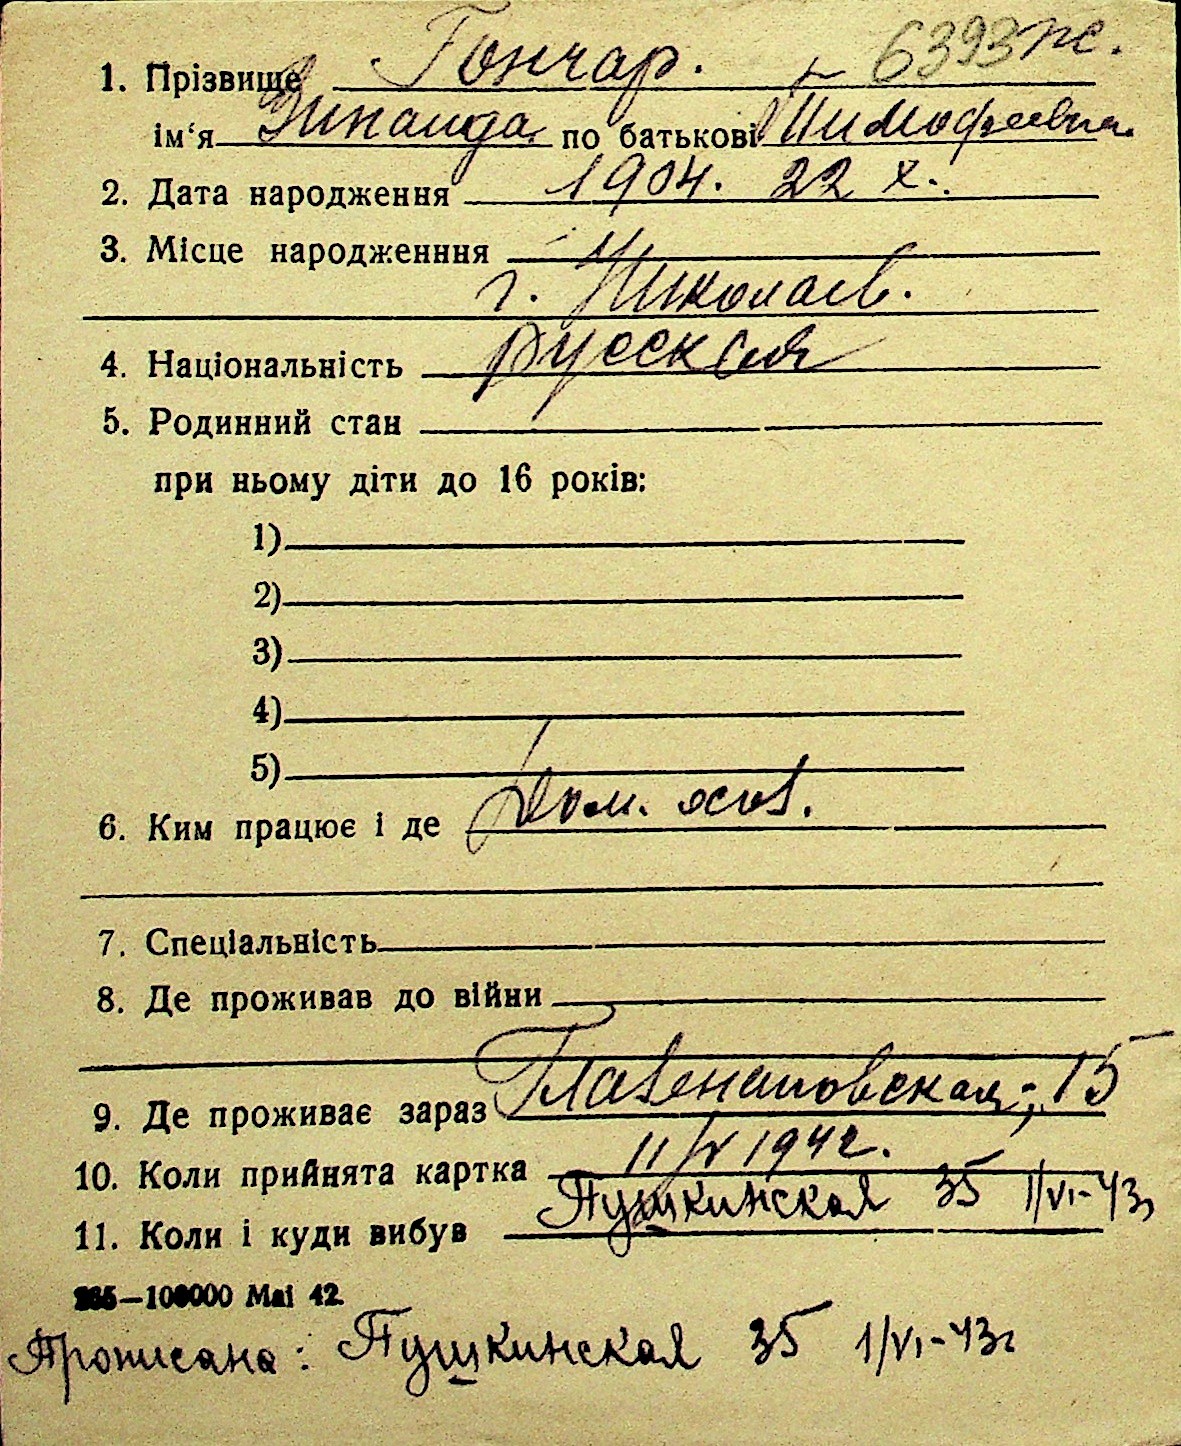 6393 ж.
1. Прізвище Гончар.
ім‘я Зинаида по батькові Тимофеевна
2. Дата народження 1904. 22 X.
3. Місце народженння
г. Николаев.
4. Національність русская
5. Родинний стан
при ньому діти до 16 років:
1)
2)
3)
4)
5)
6. Ким працює і де Дом. хоз.
7. Спеціальність
8. Де проживав до війни
9. Де проживає зараз 15
10. Коли прийнята картка 11/V 1942.
11. Коли і куди вибув Пушкинская 35 1/VI-43г
265—100000 Маі 42.
Прописана: Пушкинская 35 1/VI-43г